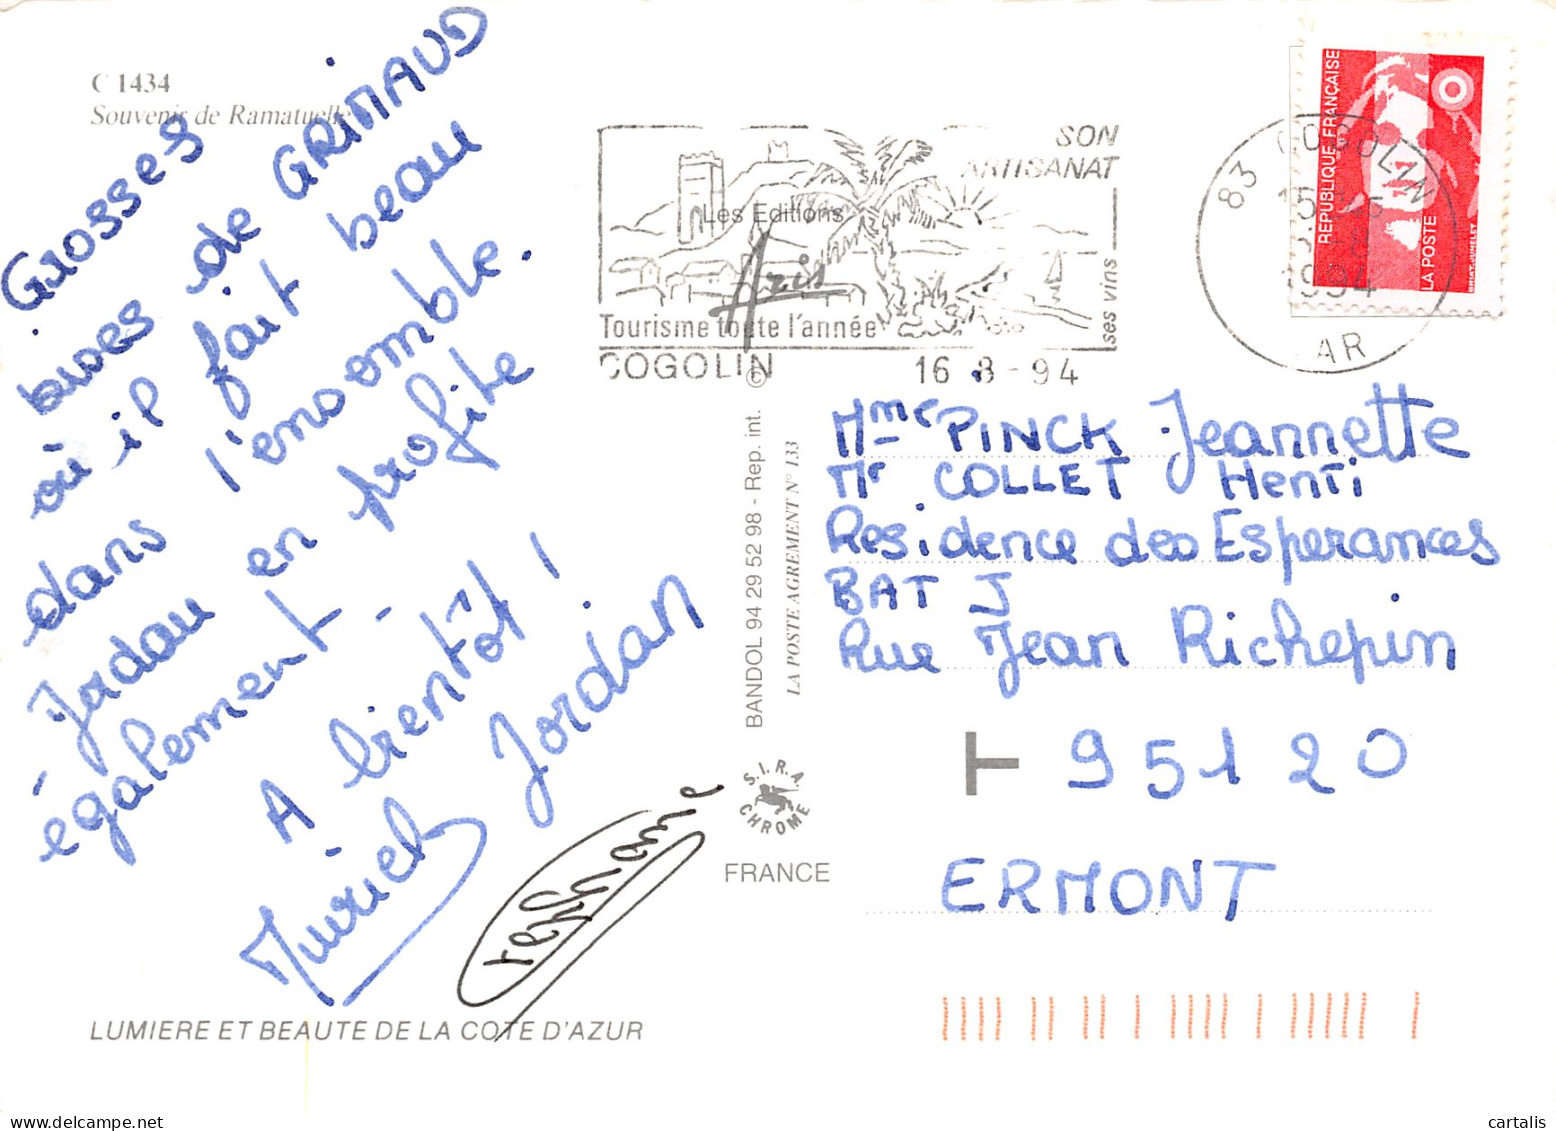 C 1434
Souvenir de Ramatuelle
Grosses
bises de GRIMAUD
où il fait beau
dans l'ensemble.
Jordan en profite
également -
A bientôt !
Muriel Jordan
stephane
LUMIERE ET BEAUTE DE LA COTE D'AZUR
SON
ARTISANAT
ses vins
Tourisme toute l'année
COGOLIN 16 -8 -94
Les Editions
Aris
© BANDOL 94 29 52 98 - Rep. int.
LA POSTE AGREMENT N° 133
S.I.R.A
CHROME
FRANCE
83 COGOLIN
1994
VAR
REPUBLIQUE FRANÇAISE
LA POSTE
BRIAT.JUMELET
Mme PINCK Jeannette
Mr COLLET Henri
Residence des Esperances
BAT J
Rue Jean Richepin
T 95120
ERMONT
cartalis